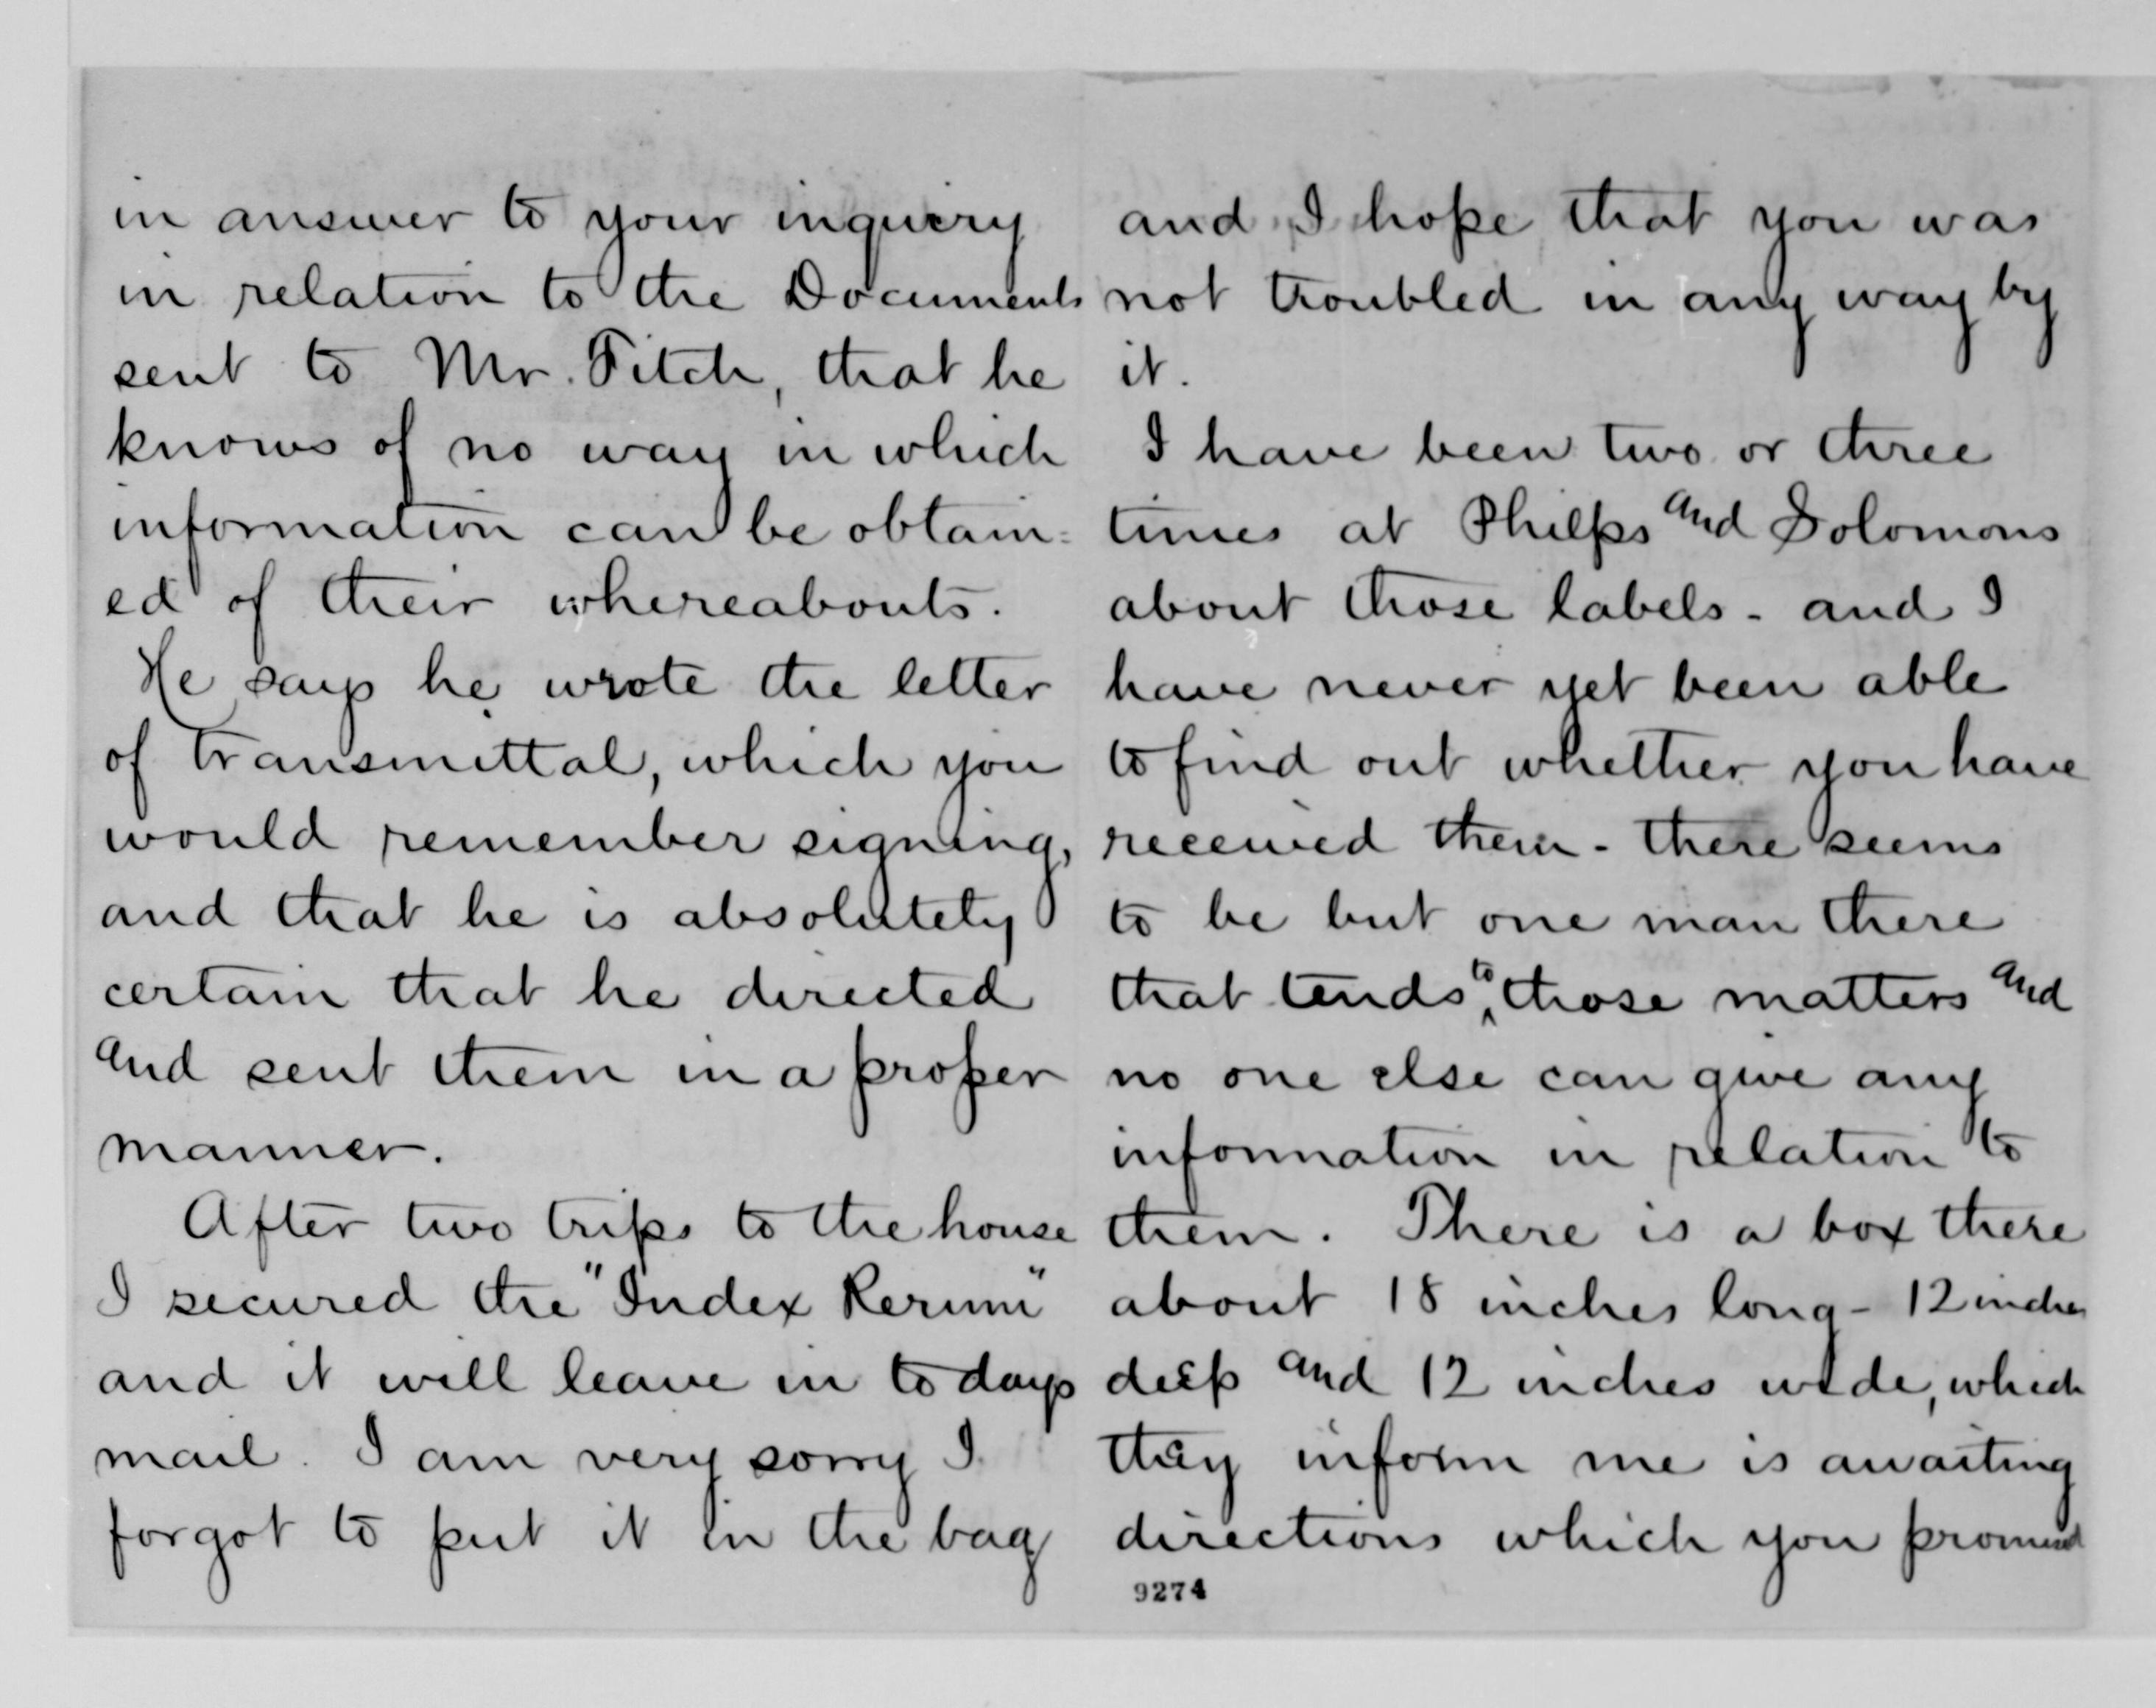 in answer to your inquiry
in relation to the Documents
sent to Mr. Fitch, that he
knows of no way in which
information can be obtain=
ed of their whereabouts.
He says he wrote the letter
of transmittal, which you
would remember signing,
and that he is absolutely
certain that he directed
and sent them in a proper
manner.
After two trips to the house
I secured the "Index Rerum"
and it will leave in to days
mail. I am very sorry I
forgot to put it in the bag
and I hope that you was
not troubled in any way by
it.
I have been two or three
times at Philps and Solomons
about those labels - and I
have never yet been able
to find out whether you have
received them - there seems
to be but one man there
that tends to those matters and
no one else can give any
information in relation to
them. There is a box there
about 18 inches long - 12 inches
deep and 12 inches wide, which
they inform me is awaiting
directions which you promised
9274